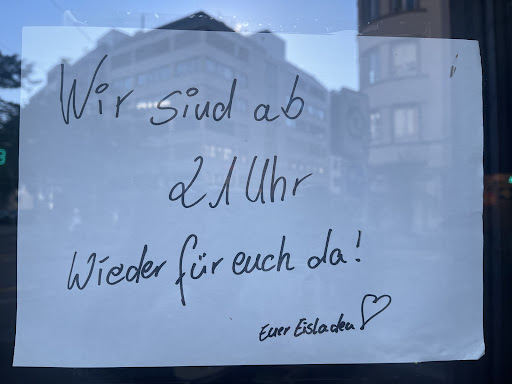 Wir sind ab
21 Uhr
Wieder für euch da!
Euer Eisladen ♡